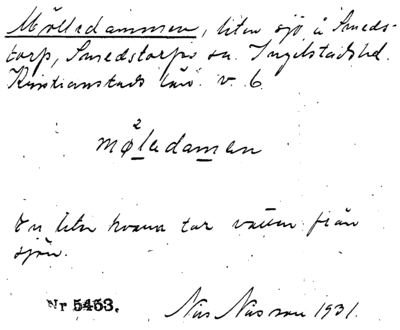 Mölledammen, liten sjö å Smeds-
torp, Smedstorps sn. Ingelstads hd.
Kristianstads län. v. 6.
2
møledamen
En liten kvarn tar vatten från
sjön.
Nr 5453. Nils Nilsson 1931.